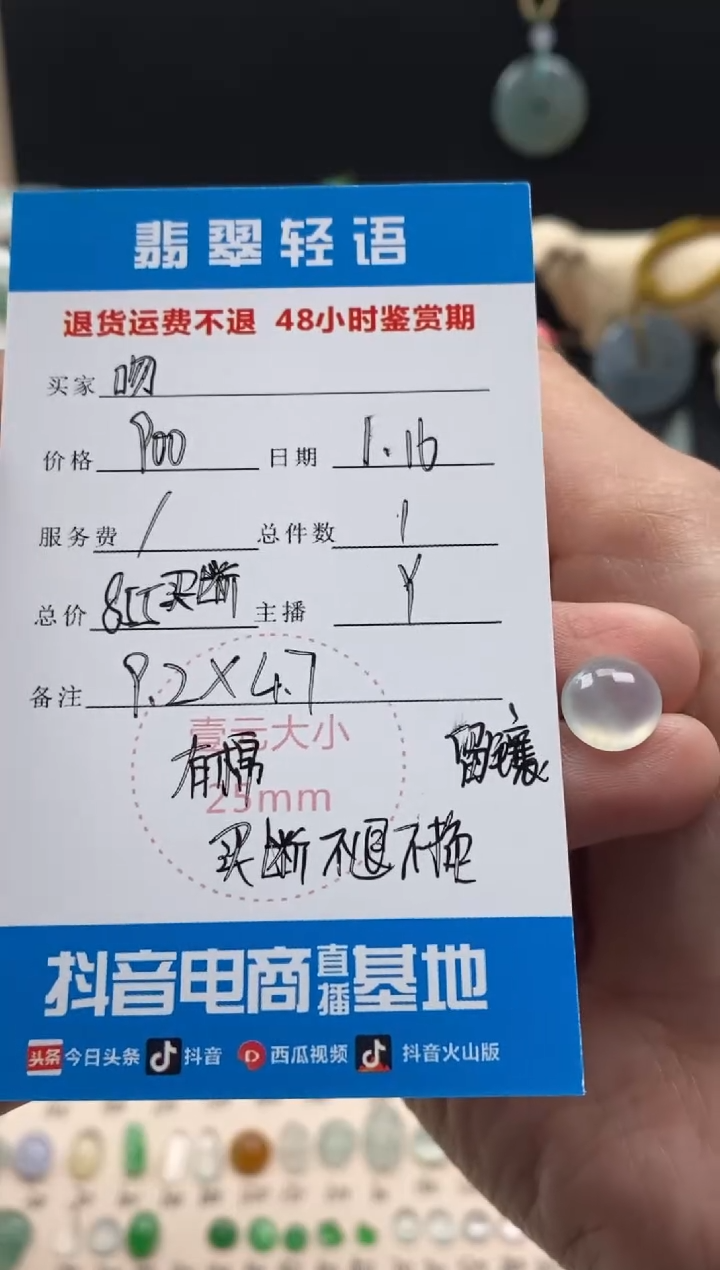 翡翠轻语
退货运费不退 48小时鉴赏期
买家 吻
价格 900 日期 1.16
服务费 / 总件数 1
总价 855买断 主播 Y
备注 9.2×4.7
壹元大小
有棉 留镶
25mm
买断不退不换
抖音电商直播基地
头条 今日头条 抖音 西瓜视频 抖音火山版